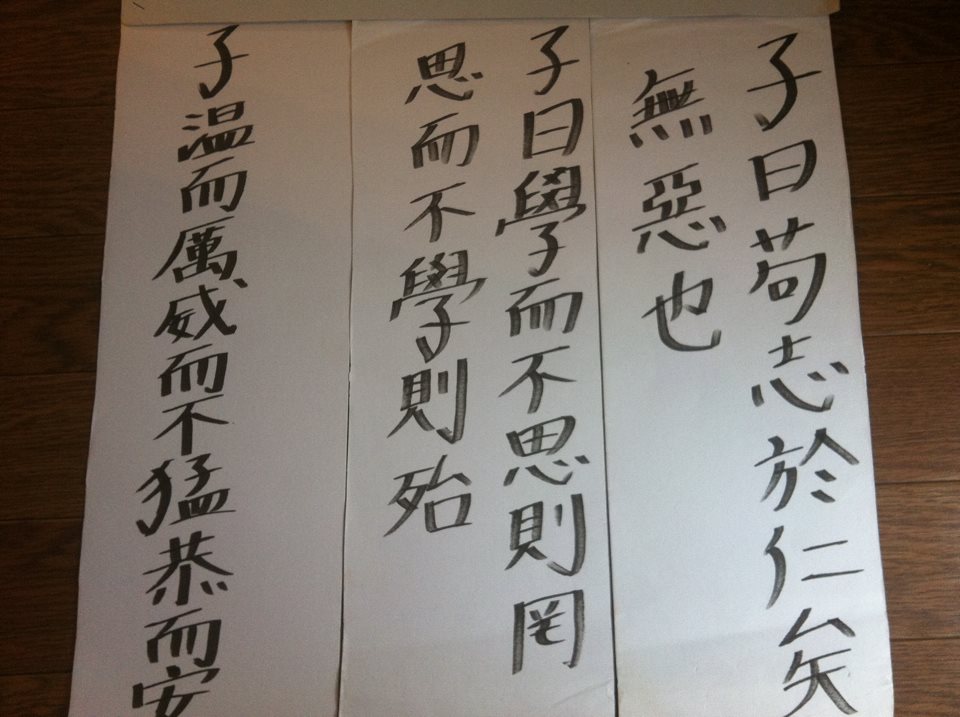 子曰苟志於仁矣
無惡也
子曰學而不思則罔
思而不學則殆
子温而厲威而不猛恭而安